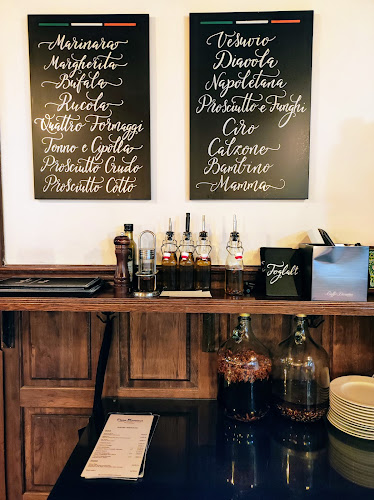 Marinara
Margherita
Bufala
Rucola
Quattro Formaggi
Tonno e Cipolla
Prosciutto Crudo
Prosciutto Cotto
Vesuvio
Diavola
Napoletana
Prosciutto e Funghi
Ciro
Calzone
Bambino
Mamma